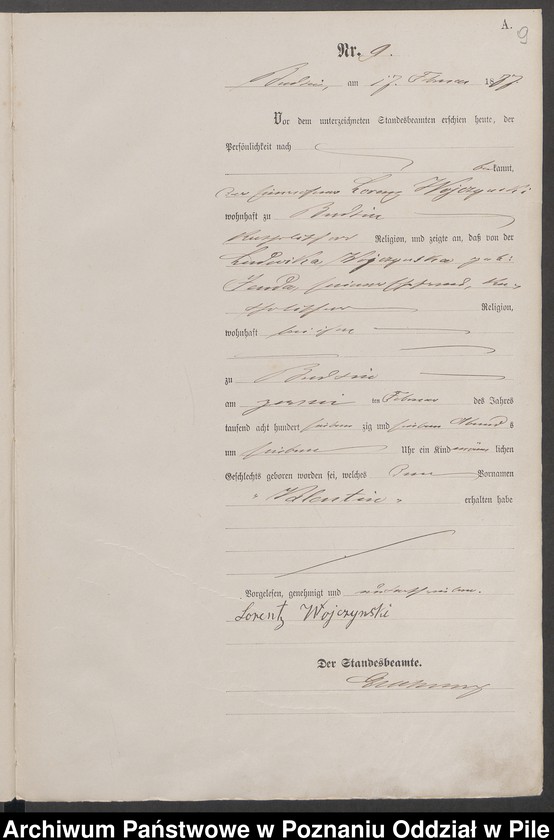 A.
9
Nr. 9.
Budsin, am 17. Februar 1877
Vor dem unterzeichneten Standesbeamten erschien heute, der
Persönlichkeit nach
bekannt,
der Lorenz Wojczynski
wohnhaft zu Budsin
katholischer Religion, und zeigte an, daß von der
Ludwika Wojczynska geb:
seiner Ehefrau, ka-
tholischer Religion,
wohnhaft bei ihm
zu Budsin
am zehn ten Februar des Jahres
tausend acht hundert sieben zig und sieben Abend s
um sieben Uhr ein Kind männ lichen
Geschlechts geboren worden sei, welches Vornamen
" Valentin " erhalten habe
Vorgelesen, genehmigt und unterschrieben.
Lorentz Wojczynski
Der Standesbeamte.
Archiwum Państwowe w Poznaniu Oddział w Pile